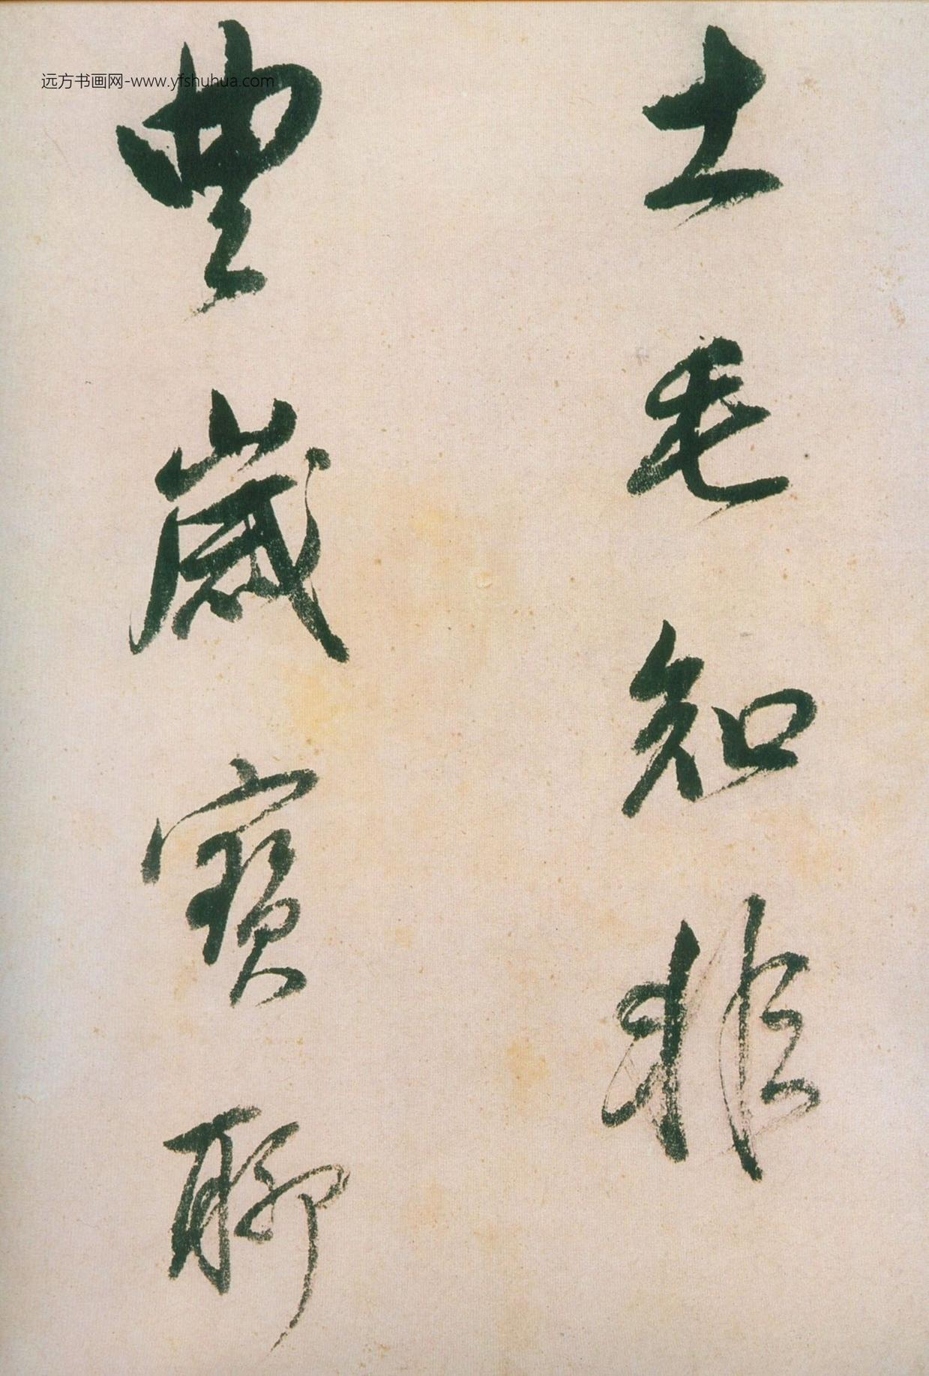 土毛知非
豐歲寶聊
远方书画网-www.yfshuhua.com